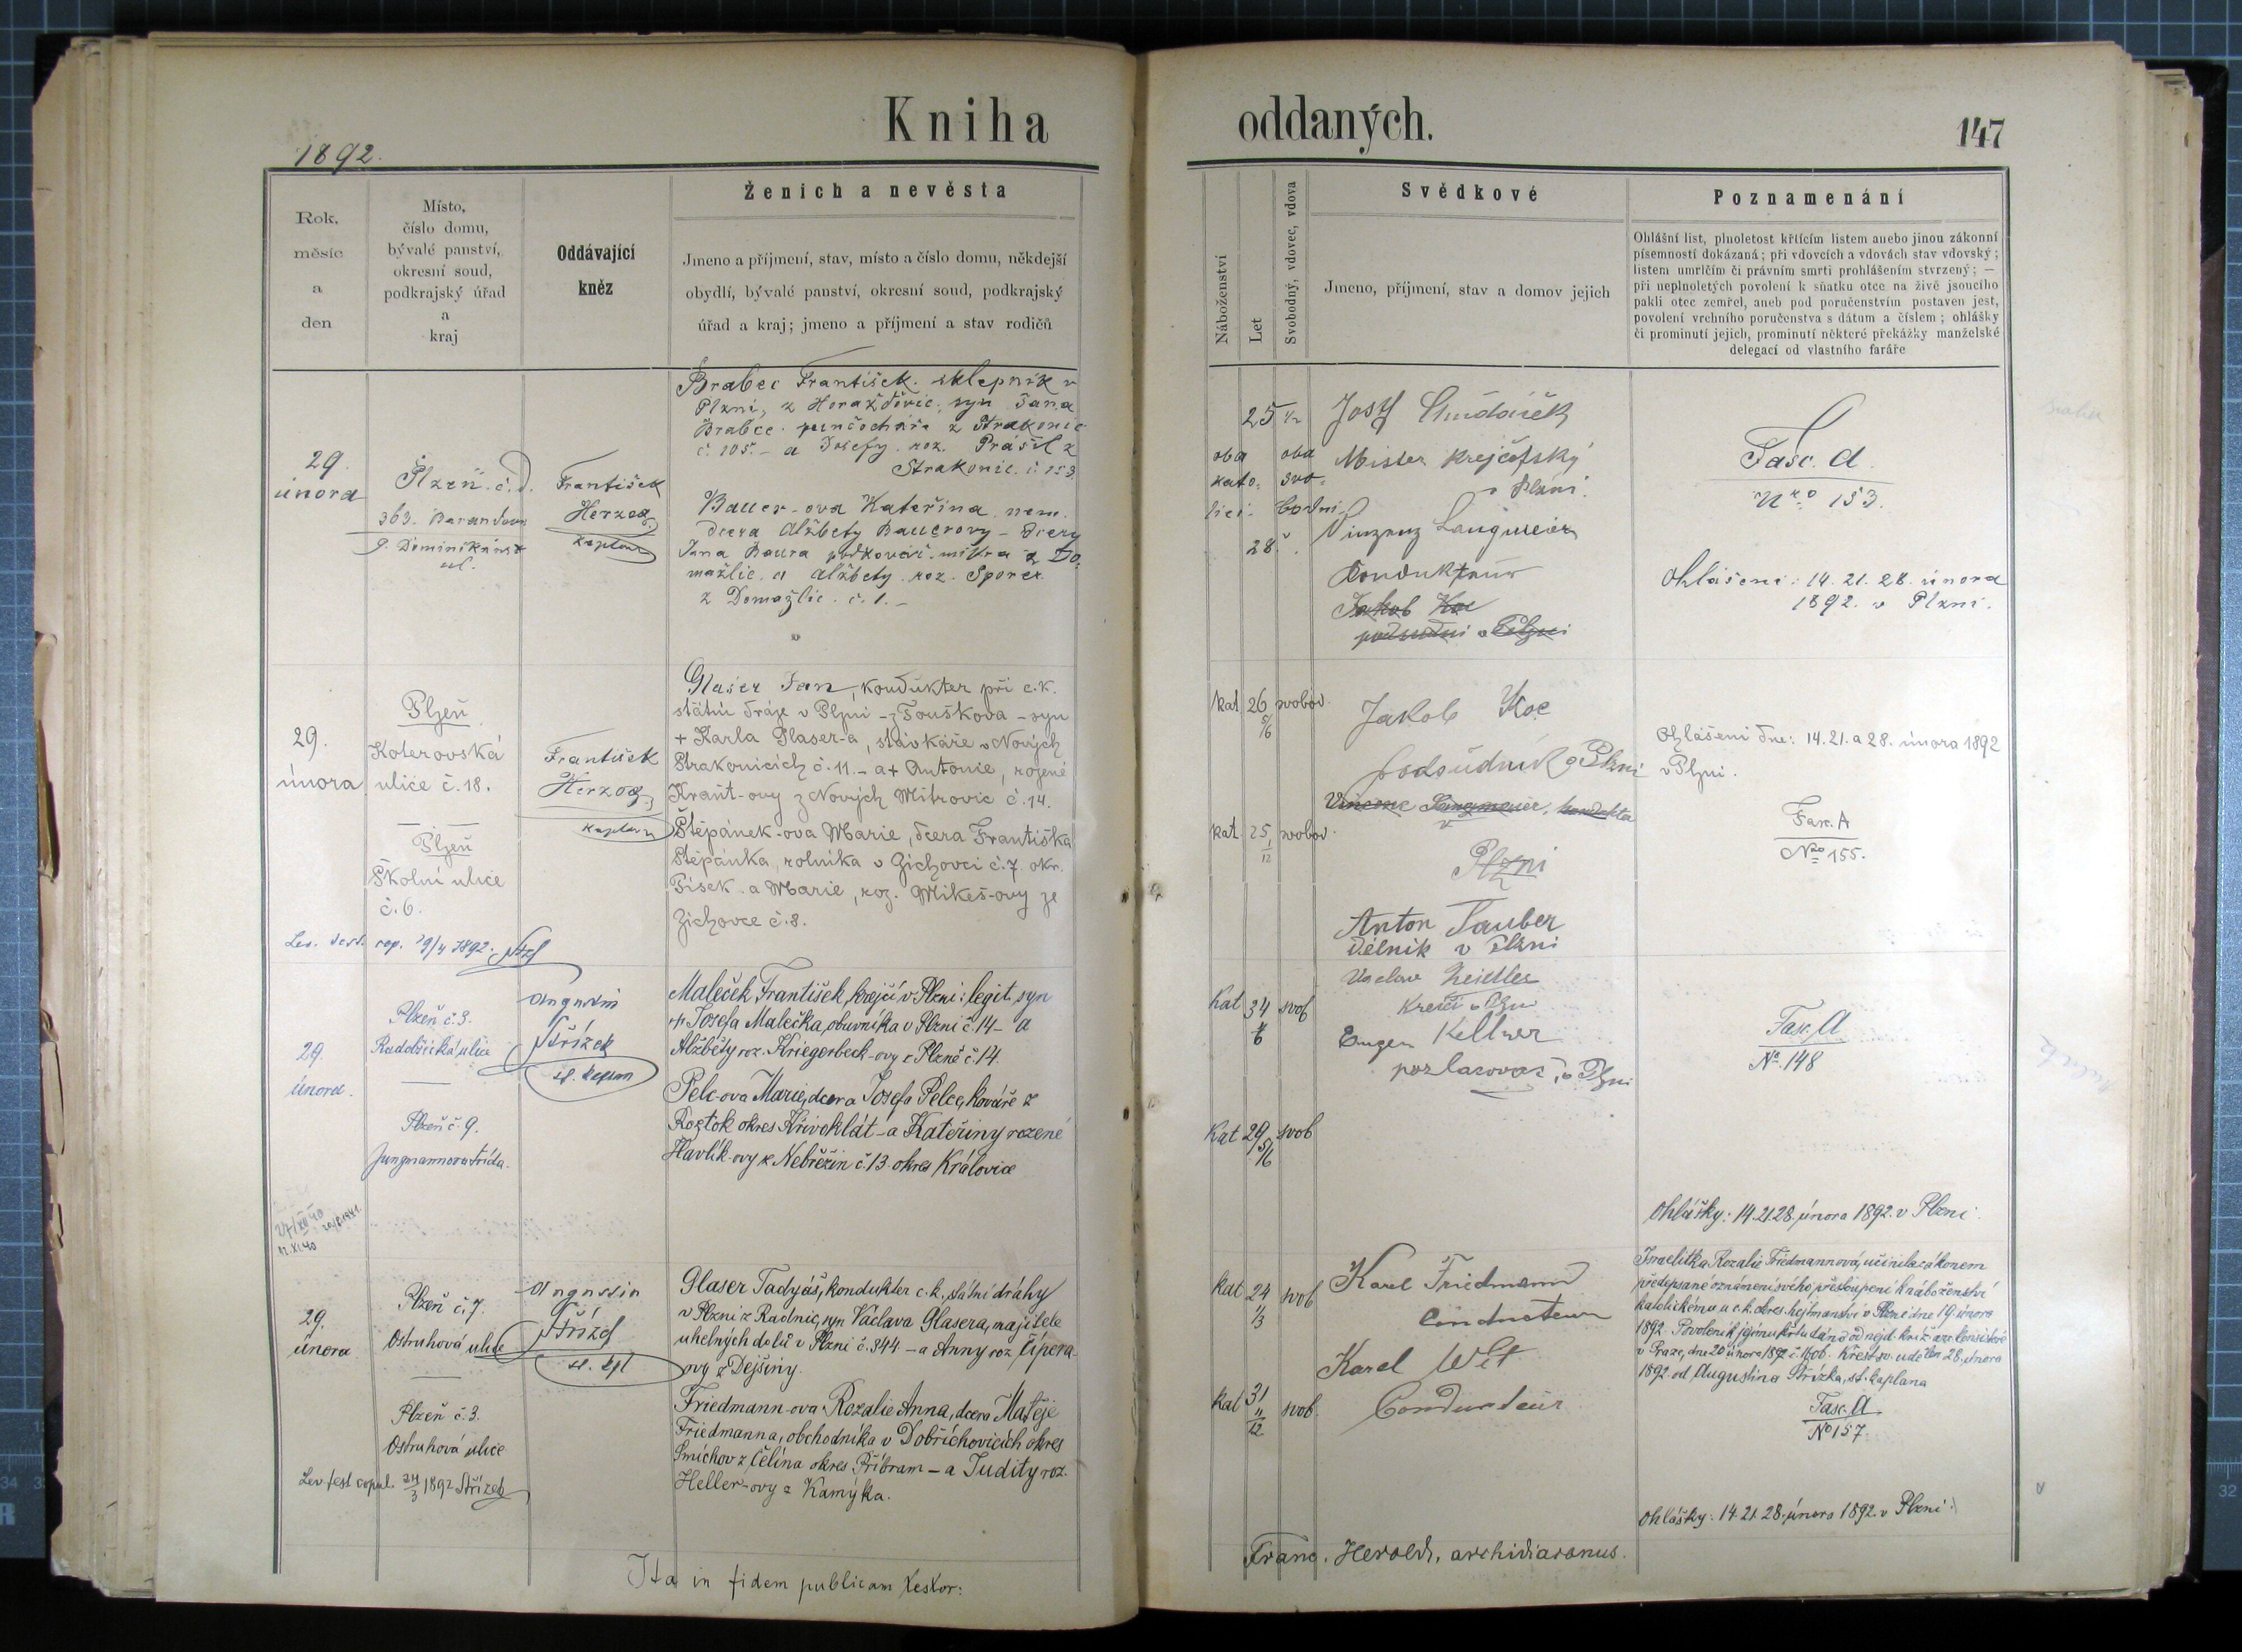 Kniha
oddaných.
147
1892.
Rok,
měsíc
a
den
Místo,
číslo domu,
bývalé panství,
okresní soud,
podkrajský úřad
a
kraj
Oddávající
kněz
Ženich a nevěsta
Jmeno a příjmení, stav, místo a číslo domu, někdejší
obydlí, bývalé panství, okresní soud, podkrajský
úřad a kraj; jmeno a příjmení a stav rodičů
Náboženství
Let
Svobodný, vdovec, vdova
Svědkové
Jmeno, příjmení, stav a domov jejich
Poznamenání
Ohlášní list, plnoletost křtícím listem anebo jinou zákonní
písemností dokázaná; při vdovcích a vdovách stav vdovský;
listem umrlčím či právním smrti prohlášením stvrzený; —
při neplnoletých povolení k sňatku otce na živě jsoucího
pakli otec zemřel, aneb pod poručenstvím postaven jest,
povolení vrchního poručenstva s dátum a číslem; ohlášky
či prominutí jejich, prominutí některé překážky manželské
delegací od vlastního faráře
29.
února
Plzeň č. d.
363.
9. Dominikánská
ul.
František
Herzog
kaplan
Brabec František. sklepník v
Plzni, z Horažďovic, syn Jana
Brabce punčocháře z Strakonic
č. 105. – a Josefy roz. Prášil z
Strakonic. č. 153.
Bauer-ova Kateřina nem.
dcera Alžbety Bauerovy – dcery
Jana Baura z Do-
mažlic. a Alžbety. roz. Sporer
z Domažlic. č. 1. –
oba
kato-
lici.
25
28
oba
svo-
bodni
Josef
Mister krejčofský
v Plzni.
Vinzenz Langmeier
Kondukteur
Jakob Koc
Fasc. A.
Nro 153.
Ohlášení: 14. 21. 28. února
1892. v Plzni.
29.
února
Plzeň
Koterovská
ulice č. 18.
Plzeň
Školní ulice
č. 6.
František
Herzog
kaplan
Glaser Jan, kondukter při c. k.
státní dráze v Plzni – z Touškova – syn
+ Karla Glaser-a, stávkáře v Nových
Strakonicích č. 11. – a + Antonie, rozené
Kraut-ovy z Nových Mitrovic č. 14.
Štěpánek-ova Marie, dcera Františka
Štěpánka, rolníka v Zichovci č. 7. okr.
Písek. a Marie, roz. Mikeš-ovy ze
Zichovce č. 8.
kat 26 5/6 svobod.
kat 25 1/12 svobod.
Jakob Koc
podsudník v Plzni
Vincenc Langmeier, kondukter
v
Plzni
Anton Tauber
dělník v Plzni
Ohlášení dne: 14. 21. a 28. února 1892
v Plzni.
Fasc. A
Nro 155.
Lev. test. cop. 29/4 1892.
29.
února.
Plzeň č. 3.
Radobčická ulice
Plzeň č. 9.
Jungmannova třída.
Augustin
Střízek
st. kaplan
Maleček František, krejčí v Plzni: legit. syn
+ Josefa Malečka, obuvníka v Plzni č. 14 – a
Alžběty roz. Kriegerbeck-ovy z Plzně č. 14.
Pelc-ova Marie, dcera Josefa Pelce, kováře z
Roztok okres Křivoklát – a Kateřiny rozené
Havlík-ovy z Nebřežin č. 13. okres Kralovice
kat 34 svob
kat 29 5/6 svob
Vaclav Zeidtler
Krejčí v Plzni
Eugen Kellner
pozlacovač v Plzni
Fasc. A
No. 148
Ohlášky: 14. 21. 28. února 1892. v Plzni.
29.
února
Plzeň č. 7.
Ostruhová ulice
Plzeň č. 3.
Ostruhová ulice
Augustin
Střízek
st. kpl
Glaser Tadyáš, kondukter c. k. státní dráhy
v Plzni z Radnic, syn Václava Glasera, majitele
uhelných dolů v Plzni č. 344 – a Anny roz Čípera-
ovy z Dejšiny.
Friedmann-ova Rozalie Anna, dcera Matěje
Friedmanna, obchodníka v Dobřichovicích okres
Smíchov z Čelína okres Příbram – a Judity roz.
Heller-ovy z Kamýka.
kat 24 1/3 svob
kat 31 11/12 svob.
Karel Friedmann
Conducteur
Karel Welt
Conducteur
Israelitka Rozalie Friedmannová, učinila zákonem
předepsané oznámení svého přestoupení k náboženství
katolickému u c. k. okres. hejtmanství v Plzni dne 19. února
1892. Povolení k jejímu křtu dáno od nejd. kníž. arc. konsistoře
v Praze, dne 20 února 1892 č. 1606. Křest sv. udělen 28. února
1892. od Augustina Střízka, st. kaplana
Fasc. A
No 157.
Lev. test. copul. 24/3 1892 Střízek
Ohlášky: 14. 21. 28. února 1892. v Plzni.
Ita in fidem publicam testor:
Franc. Herold, archidiaconus.